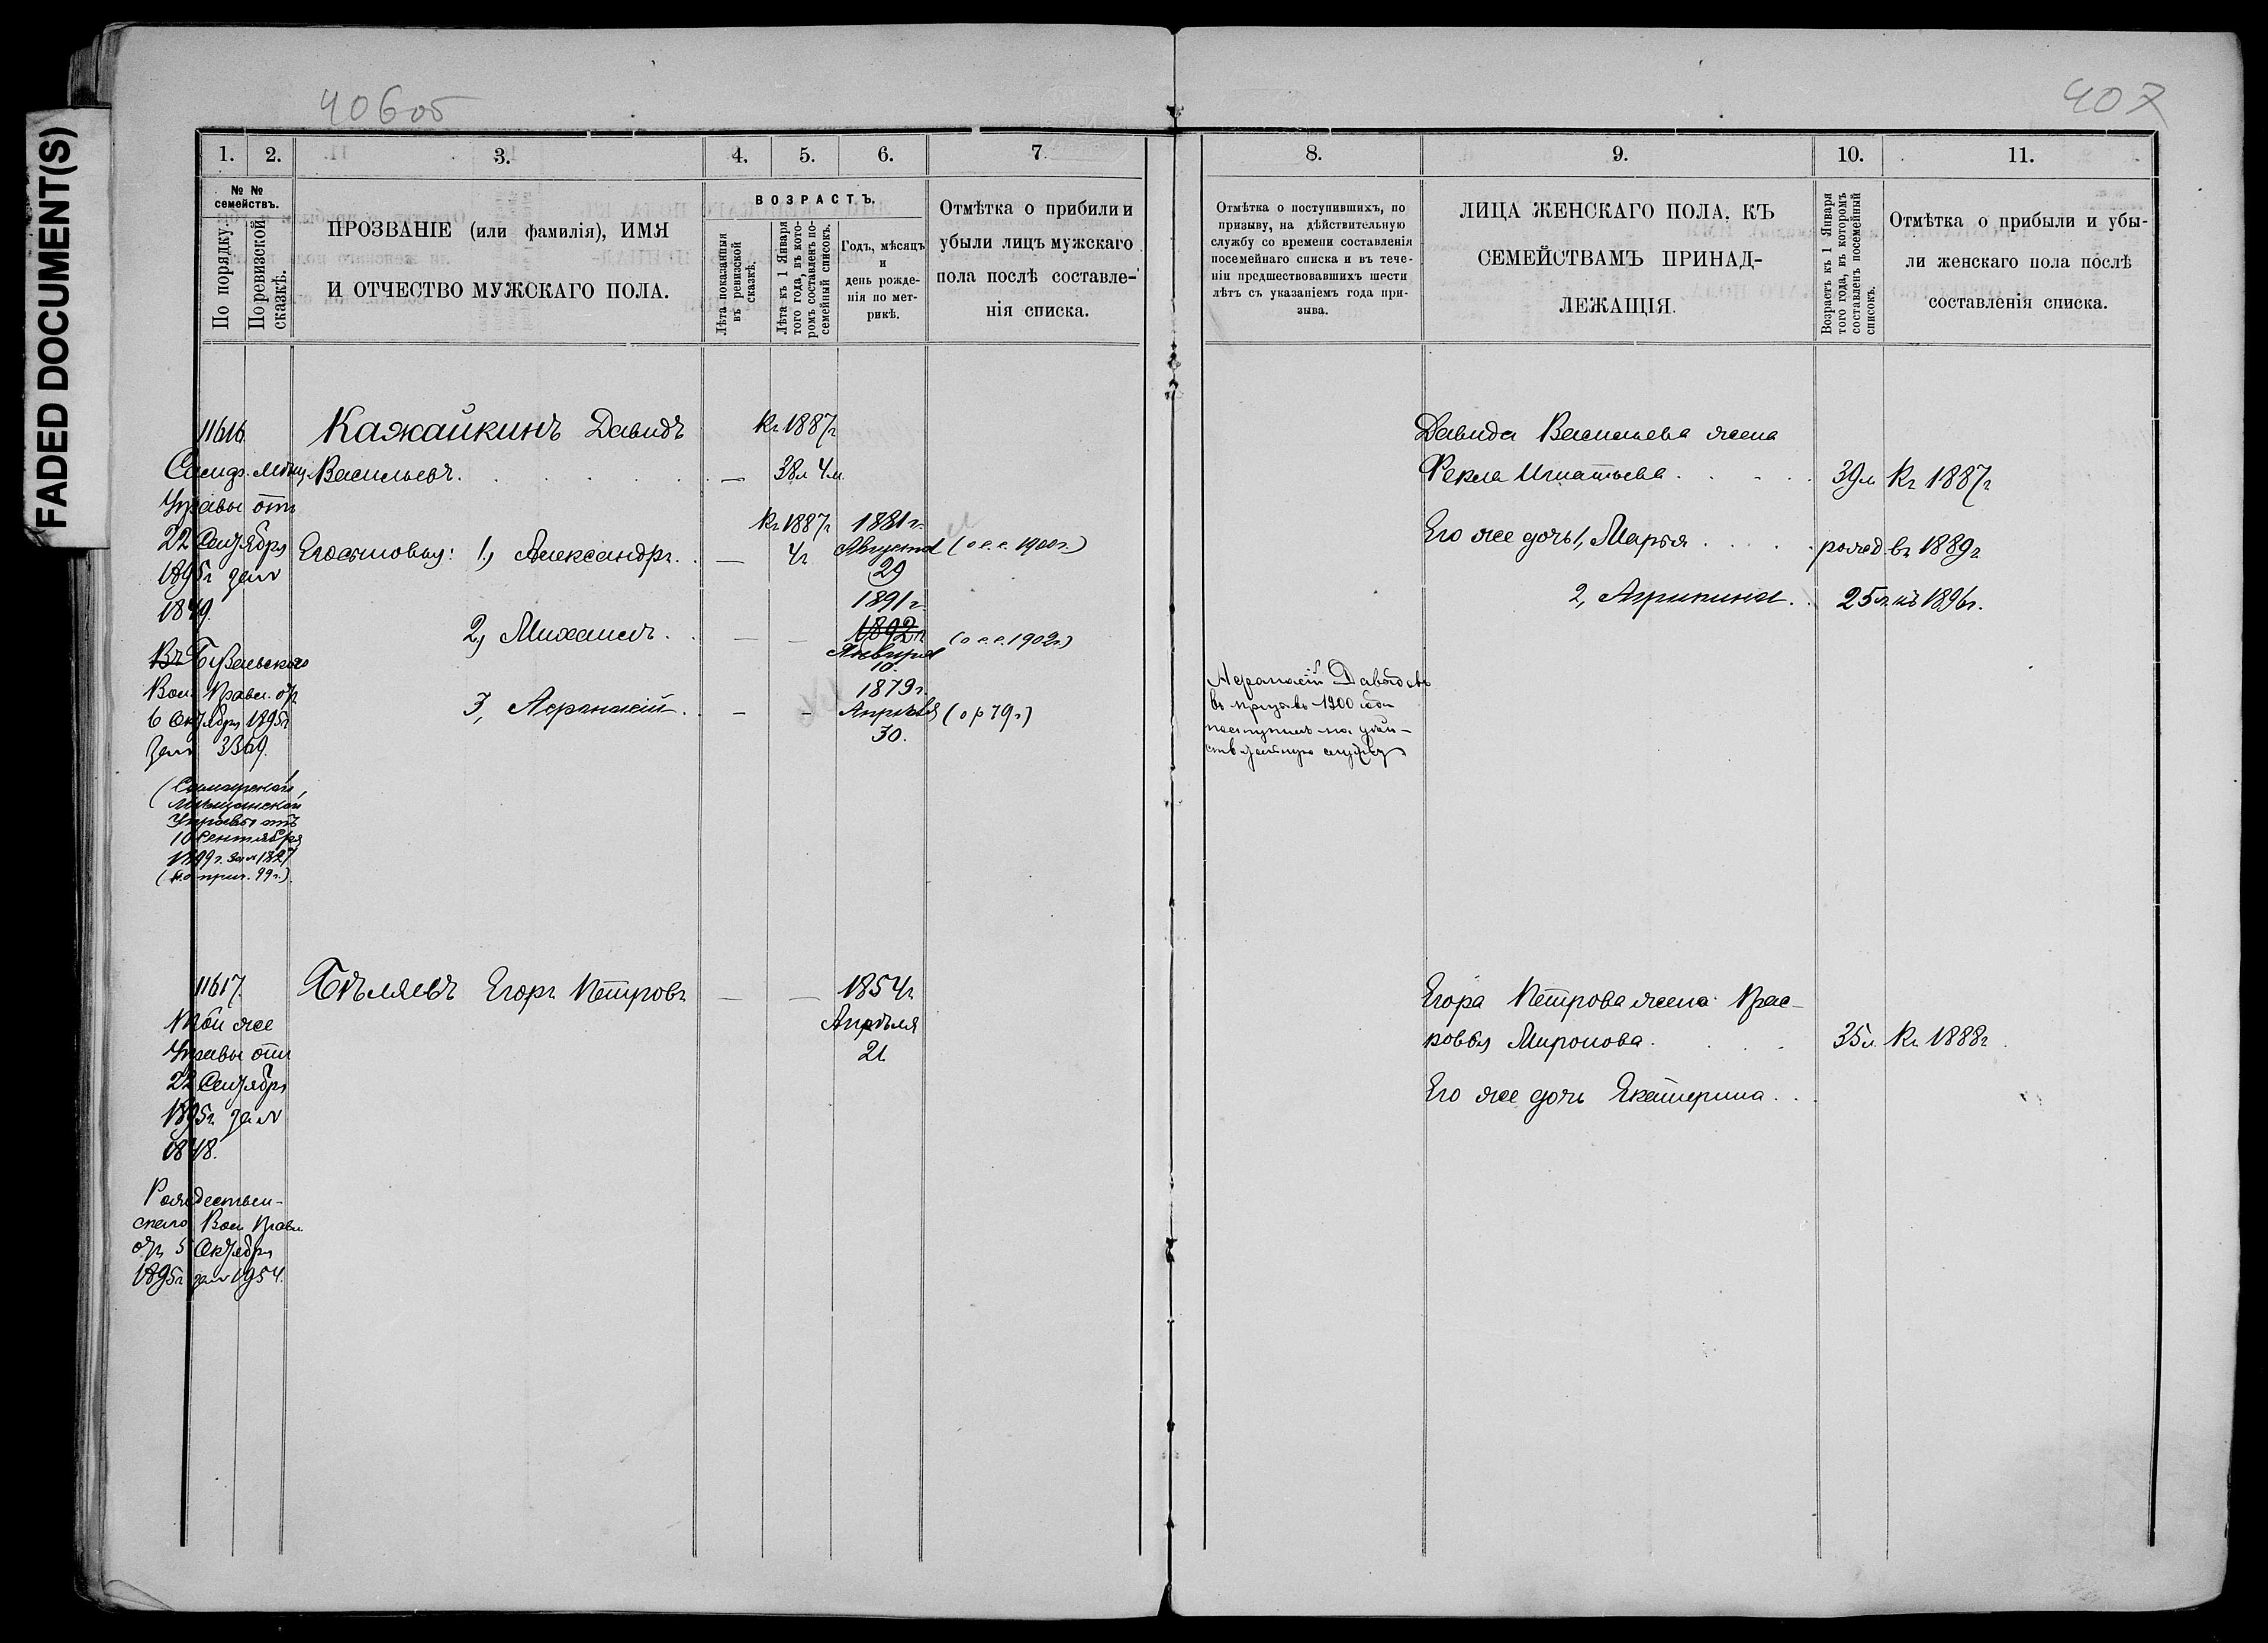 FADED DOCUMENT(S)
406об
407
1.
2.
3.
4.
5.
6.
7.
№ №
семействъ.
По порядку.
По ревизской
сказкѣ.
ПРОЗВАНІЕ (или фамилія), ИМЯ
И ОТЧЕСТВО МУЖСКАГО ПОЛА.
ВОЗРАСТЪ.
Лѣта показанныя
въ ревизской
сказкѣ.
Лѣта къ 1 Января
того года, въ кото-
ромъ составленъ по-
семейный списокъ.
Годъ, мѣсяцъ
и
день рожде-
нія по мет-
рикѣ.
Отмѣтка о прибыли и
убыли лицъ мужскаго
пола послѣ составле-
нія списка.
8.
9.
10.
11.
Отмѣтка о поступившихъ, по
призыву, на дѣйствительную
службу со времени составленія
посемейнаго списка и въ тече-
ніи предшествовавшихъ шести
лѣтъ съ указаніемъ года при-
зыва.
ЛИЦА ЖЕНСКАГО ПОЛА, КЪ
СЕМЕЙСТВАМЪ ПРИНАД-
ЛЕЖАЩІЯ.
Возрастъ къ 1 Января
того года, въ которомъ
составленъ посемейный
списокъ.
Отмѣтка о прибыли и убы-
ли женскаго пола послѣ
составленія списка.
11616
Кажайкинъ Давидъ
Къ 1887г
Васильевъ.
38л 4м
Управы отъ
22 Сентября
1895г за №
1849.
Его сыновья: 1, Александръ.
Къ 1887г
4г
1881г.
Августа
29
(о с.с. 1900г.)
2, Михаилъ.
1891г
1892г
Января
10.
(о с.с. 1902г.)
3, Афанасій.
1879г.
Апрѣля
30.
(о р 79г)
Вол. Правл. отъ
6 Октября 1895г
за № 3369.
(Самарской
Мѣщанской
Управы отъ
10 Сентября
1899г. за № 1827
Афанасій Давыдовъ
въ призывъ 1900 года
поступилъ на дѣй-
ствительную службу
Давида Васильева жена
Фекла Игнатьева.
39л Къ 1887г
Его же дочь 1, Марья
рожд. въ 1889г.
2, Агрипина.
25л. къ 1896г.
11617.
Бѣляевъ Егоръ Петровъ
1854г
Апрѣля
21
Той же
Управы отъ
22 Сентября
1895г за №
1848.
Рождествен-
скаго Вол. Правл.
отъ 5 Октября
1895г за № 1954.
Егора Петрова жена Прас-
ковья Миронова.
35л. Къ 1888г.
Его же дочь Екатерина.